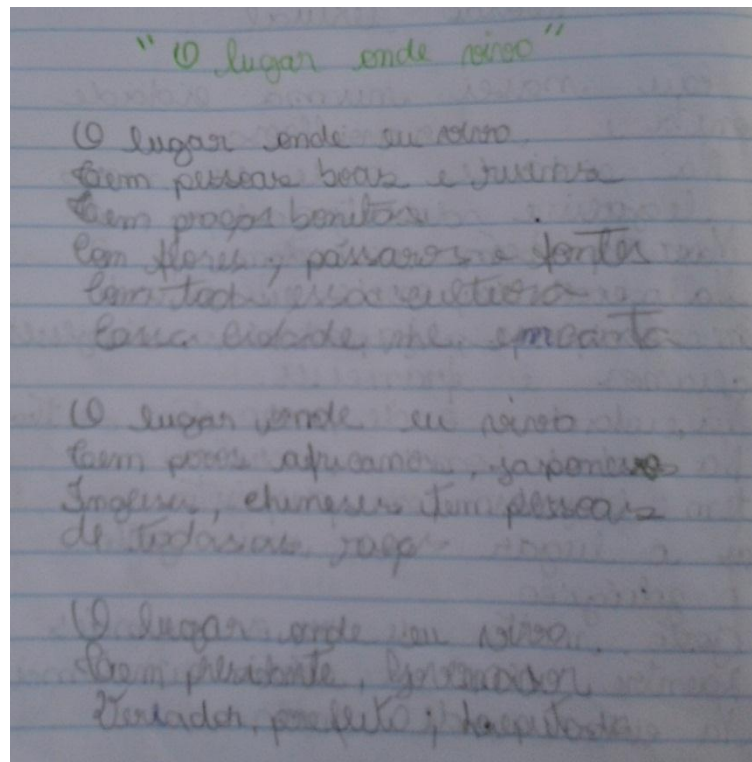 "O lugar onde vivo"
O lugar onde eu vivo
Tem pessoas boas e ruins
Tem praças bonitas
Com flores, pássaros e fontes
Com toda essa cultura
Essa cidade me encanta
O lugar onde eu vivo
Tem povos africanos, japoneses
Ingleses, chineses tem pessoas
de todas as raças
O lugar onde eu vivo
Tem presidente, governador
Vereador, prefeito, deputado